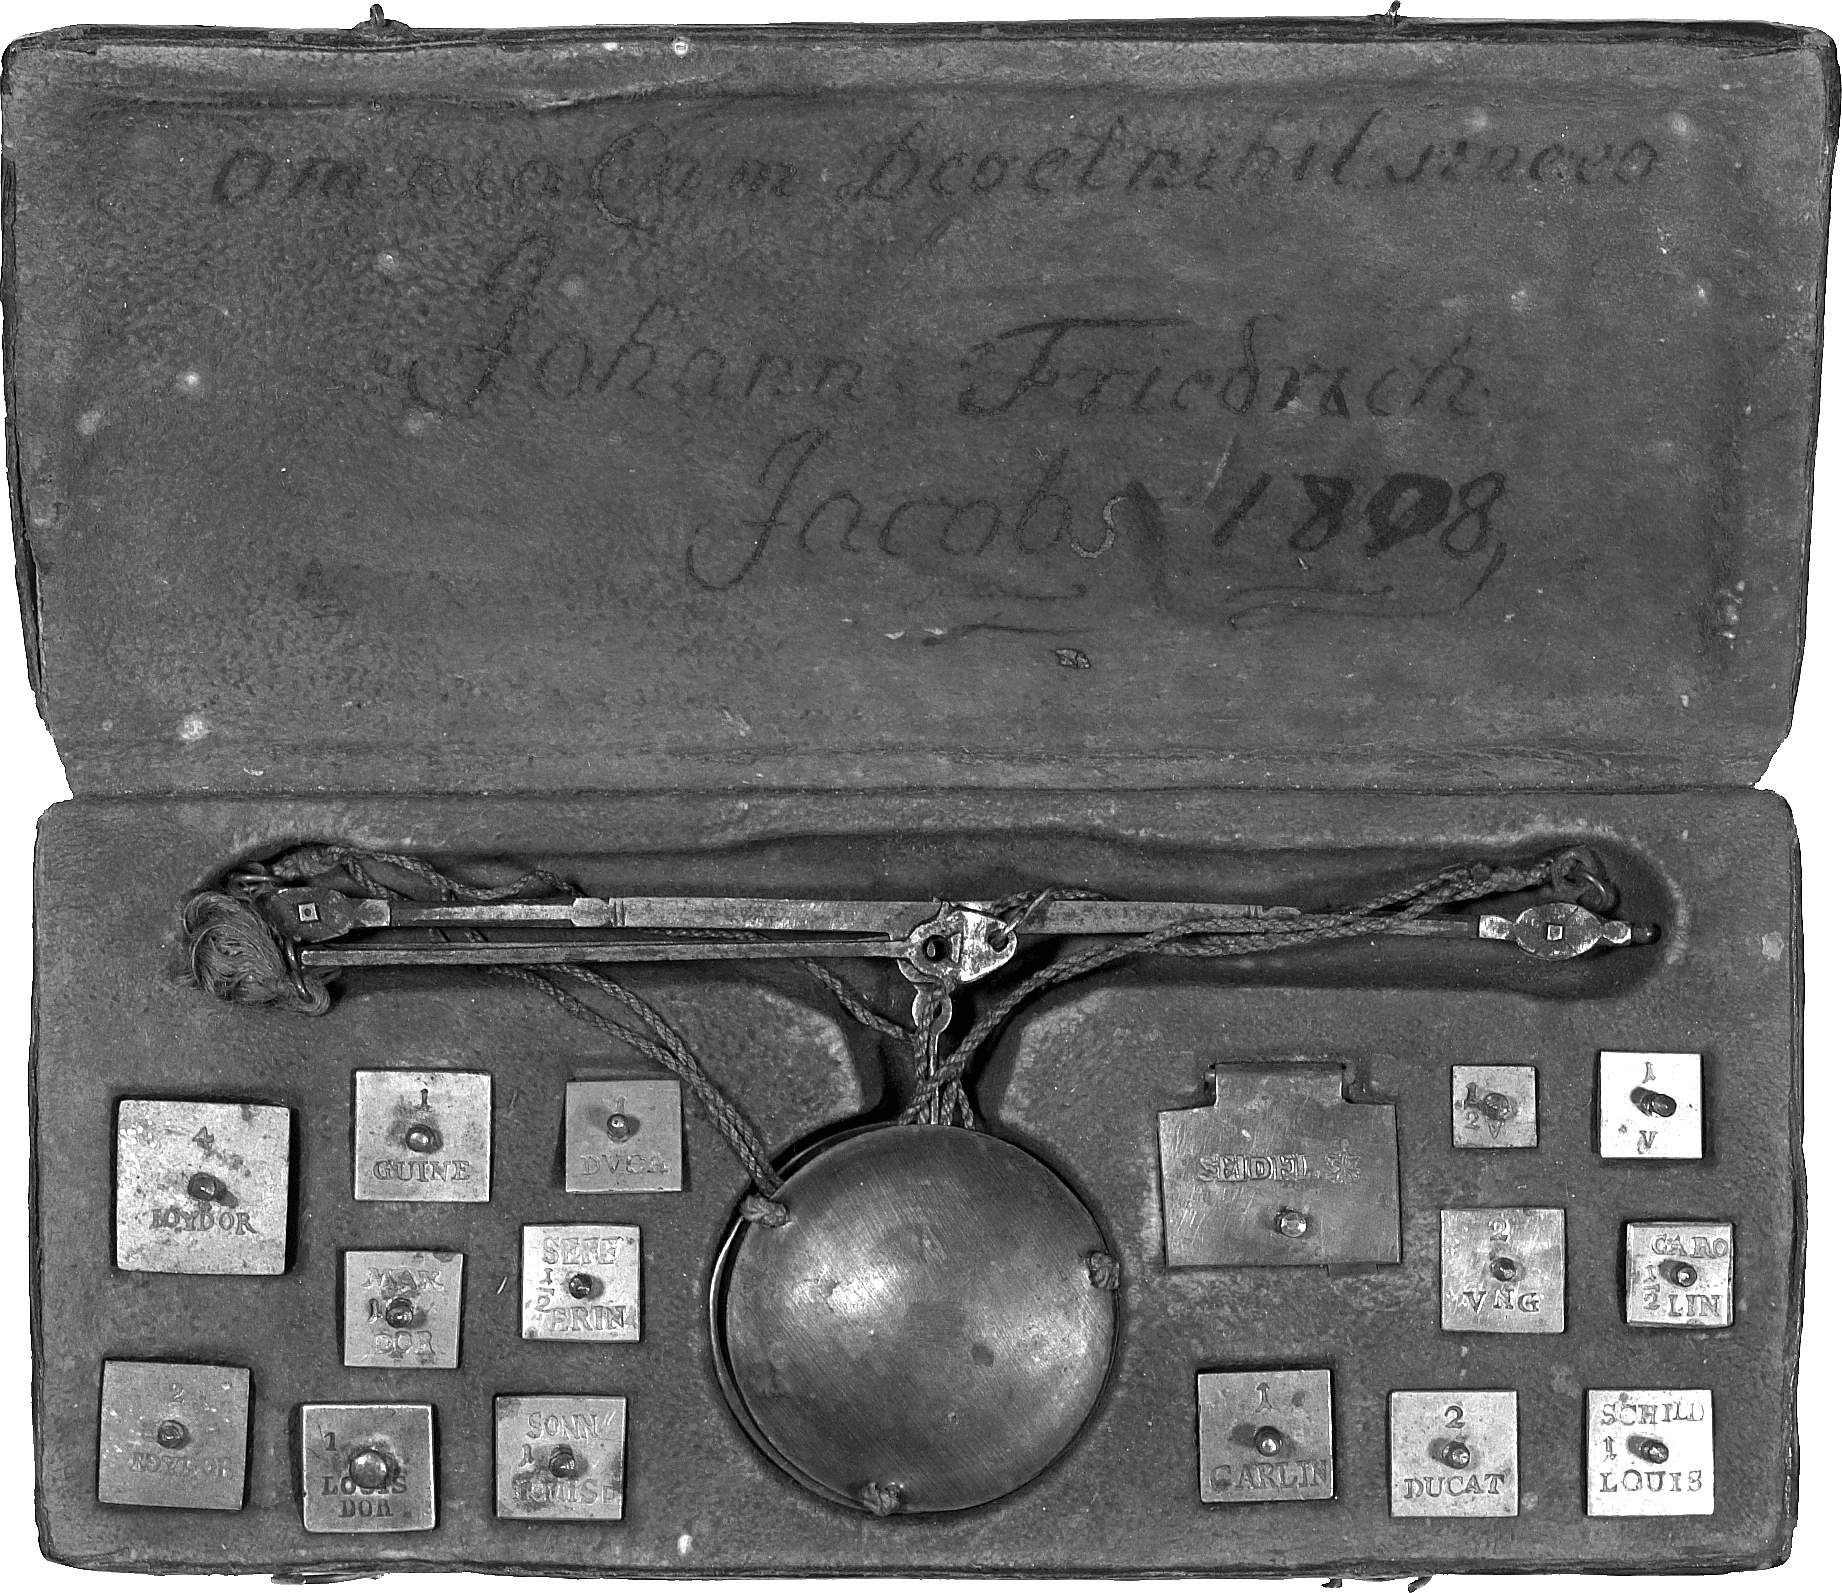 omnia Cum Deo et nihil sine eo
Johann Friedrich
Jacobs 1808,
4
LOYDOR
1
GUINE
1
DVCA
1
MAX
DOR
SEFE
1/2
ERIN
2
1
LOUIS
DOR
SONN
1
LOUISD
SEIDEL
1/2
V
1
V
2
VNG
CARO
1/2
LIN
1
CARLIN
2
DUCAT
SCHILD
1
LOUIS